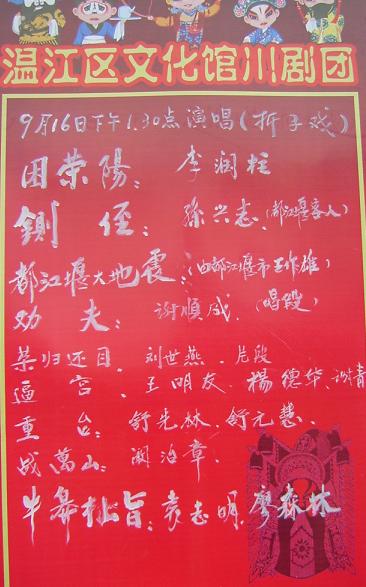 温江区文化馆川剧团
9月16日下午1.30点演唱(折子戏)
困荣陽: 李润柱
铡 侄: 孫兴志(都江堰客人)
都江堰大地震:(由都江堰市王作雄)
劝 夫: 谢順成.(唱段)
荣归还目. 刘世燕. 片段
逼 宫. 王明友、楊德华、谢青
重 台: 舒先林、舒元慧.
战萬山: 阚治章.
牛皋扯旨: 袁志明、廖森林